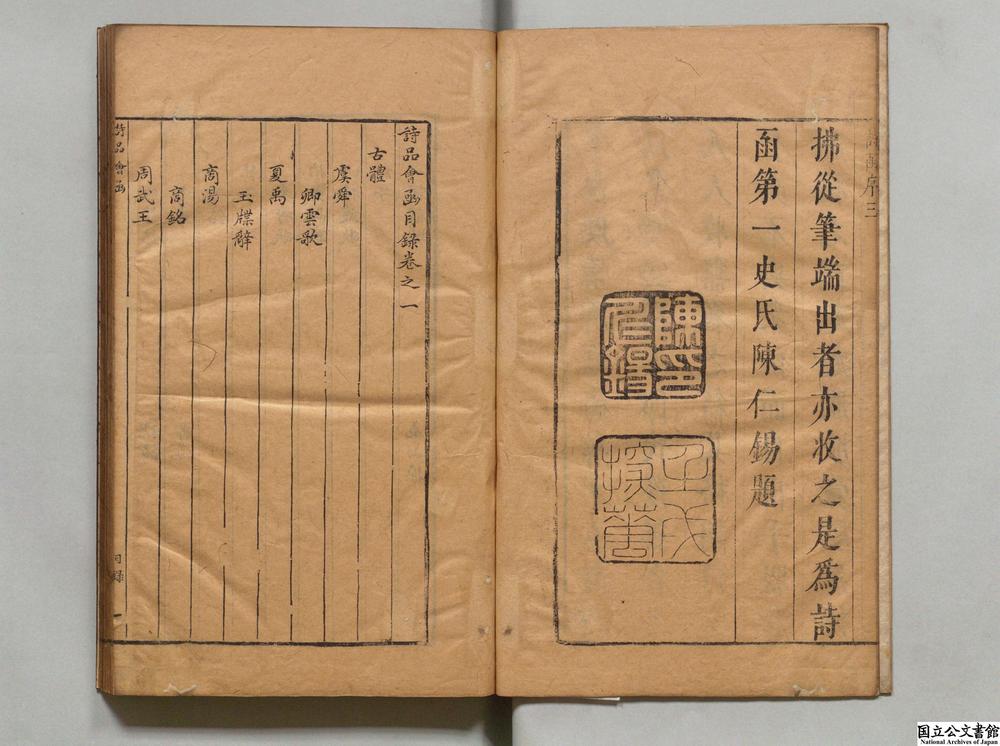 拂從筆端出者亦收之是爲詩
函第一史氏陳仁錫題
陳印仁錫
壬氏探簡
序三
詩品會函目錄卷之一
古體
虞舜
卿雲歌
夏禹
玉牒辭
商湯
商銘
周武王
詩品會函
目錄
一
国立公文書館
National Archives of Japan